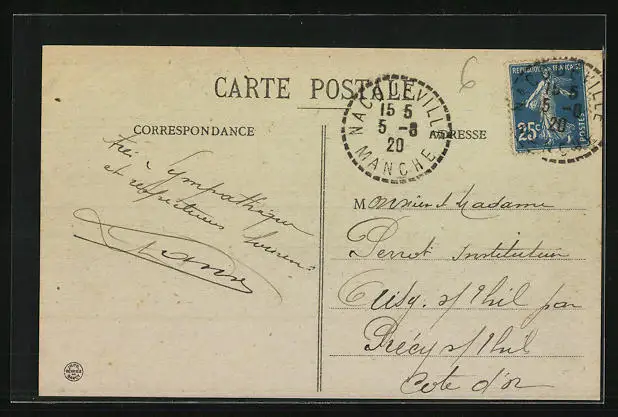 6
CARTE POSTALE
NACQUEVILLE
15 5
5 -8
20
MANCHE
REPUBLIQUE FRANÇAISE
25c
POSTES
15 5
5 -8
20
CORRESPONDANCE
ADRESSE
Très Sympathique
et respectueux
Monsieur et Madame
Perrot Instituteur
s/Thil par
Précy s/Thil
Cote d'or